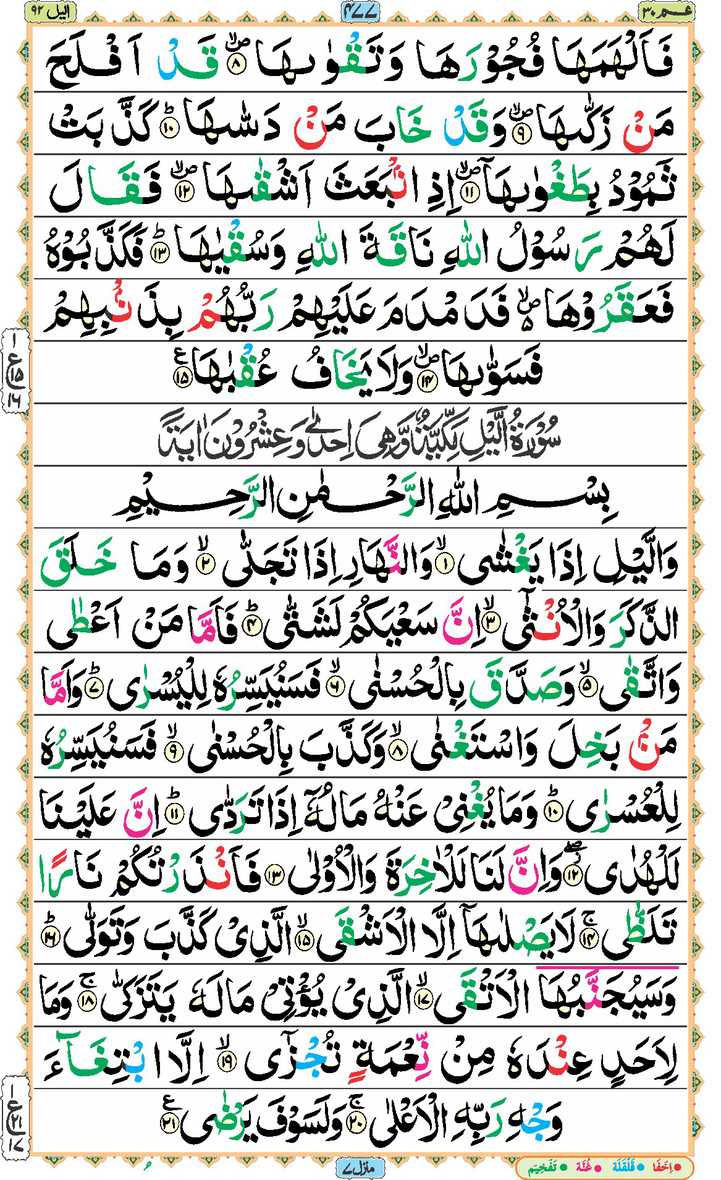 عم ٣٠
٤٧٧
الیل ٩٢
فَاَلْهَمَهَا فُجُوْرَهَا وَتَقْوٰىهَا ۪ۙ‏ ﴿۸﴾ قَدْ اَفْلَحَ
مَنْ زَكّٰىهَا ۪ۙ‏ ﴿۹﴾ وَقَدْ خَابَ مَنْ دَسّٰىهَا ؕ‏ ﴿۱۰﴾ كَذَّبَتْ
ثَمُوْدُ بِطَغْوٰىهَاۤ ۪ۙ‏ ﴿۱۱﴾ اِذِ انْۢبَعَثَ اَشْقٰىهَا ۪ۙ‏ ﴿۱۲﴾ فَقَالَ
لَهُمْ رَسُوْلُ اللّٰهِ نَاقَةَ اللّٰهِ وَسُقْيٰهَا ؕ‏ ﴿۱۳﴾ فَكَذَّبُوْهُ
فَعَقَرُوْهَا ۪ۙ‏ۙ۵ فَدَمْدَمَ عَلَيْهِمْ رَبُّهُمْ بِذَنْۢبِهِمْ
فَسَوّٰىهَا ۪ۙ‏ ﴿۱۴﴾ وَلَا يَخَافُ عُقْبٰهَا ‏ ﴿۱۵﴾ ع
سُوْرَةُ الَّيْلِ مَكِّيَّةٌ وَّهِىَ اِحْدٰى وَعِشْرُوْنَ اٰيَةً
بِسْمِ اللّٰهِ الرَّحْمٰنِ الرَّحِيْمِ
وَالَّيْلِ اِذَا يَغْشٰى ۙ‏ ﴿۱﴾ وَالنَّهَارِ اِذَا تَجَلّٰى ۙ‏ ﴿۲﴾ وَمَا خَلَقَ
الذَّكَرَ وَالْاُنْثٰٓى ۙ‏ ﴿۳﴾ اِنَّ سَعْيَكُمْ لَشَتّٰى ؕ‏ ﴿۴﴾ فَاَمَّا مَنْ اَعْطٰى
وَاتَّقٰى ۙ‏ ﴿۵﴾ وَصَدَّقَ بِالْحُسْنٰى ۙ‏ ﴿۶﴾ فَسَنُيَسِّرُهٗ لِلْيُسْرٰى ؕ‏ ﴿۷﴾ وَاَمَّا
مَنْۢ بَخِلَ وَاسْتَغْنٰى ۙ‏ ﴿۸﴾ وَكَذَّبَ بِالْحُسْنٰى ۙ‏ ﴿۹﴾ فَسَنُيَسِّرُهٗ
لِلْعُسْرٰى ؕ‏ ﴿۱۰﴾ وَمَا يُغْنِىْ عَنْهُ مَالُهٗۤ اِذَا تَرَدّٰى ؕ‏ ﴿۱۱﴾ اِنَّ عَلَيْنَا
لَلْهُدٰى ۖ ‏ ﴿۱۲﴾ وَاِنَّ لَنَا لَلْاٰخِرَةَ وَالْاُوْلٰى ‏ ﴿۱۳﴾ فَاَنْذَرْتُكُمْ نَارًا
تَلَظّٰى ۚ‏ ﴿۱۴﴾ لَا يَصْلٰىهَاۤ اِلَّا الْاَشْقَى ۙ‏ ﴿۱۵﴾ الَّذِىْ كَذَّبَ وَتَوَلّٰى ؕ‏ ﴿۱۶﴾
وَسَيُجَنَّبُهَا الْاَتْقَى ۙ‏ ﴿۱۷﴾ الَّذِىْ يُؤْتِىْ مَالَهٗ يَتَزَكّٰى ۚ‏ ﴿۱۸﴾ وَمَا
لِاَحَدٍ عِنْدَهٗ مِنْ نِّعْمَةٍ تُجْزٰٓى ۙ‏ ﴿۱۹﴾ اِلَّا ابْتِغَآءَ
وَجْهِ رَبِّهِ الْاَعْلٰى ۚ‏ ﴿۲۰﴾ وَلَسَوْفَ يَرْضٰى ‏ ﴿۲۱﴾ ع
١ ع ١٥ ١٦
١ ع ٢١ ١٧
منزل ٧
اِخفَا • قَلْقَلَة • غُنَّة • تَفْخِيم